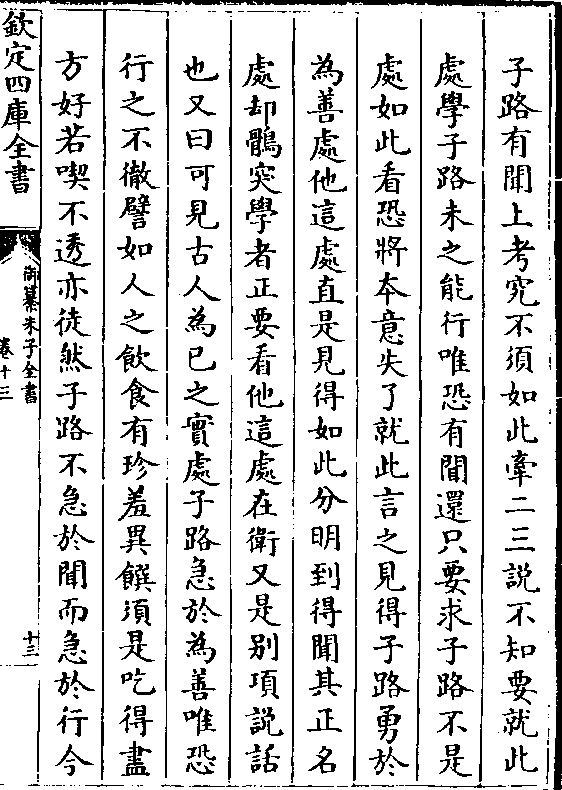 子路有聞上考究不須如此牽二三說不知要就此
處學子路未之能行唯恐有聞還只要求子路不是
處如此看恐將本意失了就此言之見得子路勇於
為善處他這處直是見得如此分明到得聞其正名
處却鶻突學者正要看他這處在衛又是别項説話
也又曰可見古人為已之實處子路急於為善唯恐
行之不徹譬如人之飲食有珍羞異饌須是吃得盡
方好若喫不透亦徒然子路不急於聞而急於行今
欽定四庫全書
御纂朱子全書
卷十三
十三